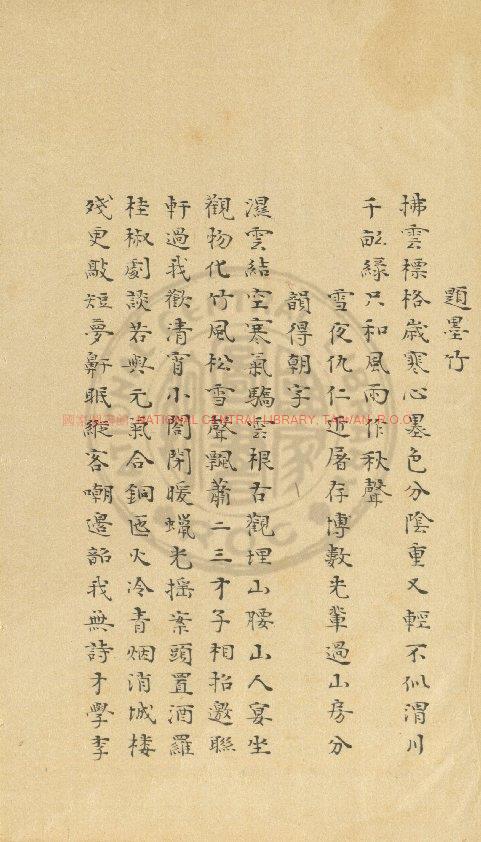 題墨竹
拂雲標格歲寒心墨色分陰重又輕不似渭川
千畝綠只和風雨作秋聲
雪夜仇仁近屠存博數先輩過山房分
韻得朝字
濕雲結空寒氣驕雲根古觀埋山腰山人宴坐
觀物化竹風松雪聲飄蕭二三才子相招邀聯
軒過我歡清宵小閣閉暖蠟光搖案頭置酒羅
桂椒劇談若與元氣合銅匜火冷青烟消城樓
殘更敲短夢鼾眠縱客嘲邊韶我無詩才學李
國家圖書館 NATIONAL CENTRAL LIBRARY, TAIWAN (R.O.C)